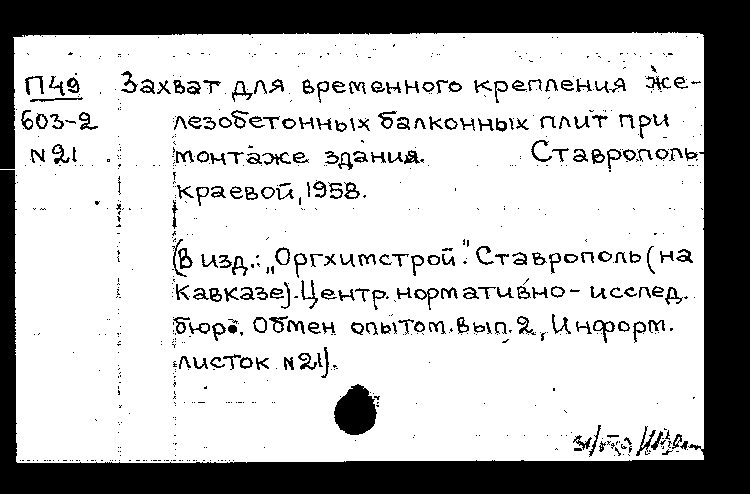 П49 Захват для временного крепления же-
603-2 лезобетонных балконных плит при
N21 монтаже здания. Ставрополь-
краевой, 1958.
(В изд.: „Оргхимстрой". Ставрополь (на
Кавказе). Центр. нормативно-исслед.
бюро. Обмен опытом. вып. 2, Информ.
листок N21).